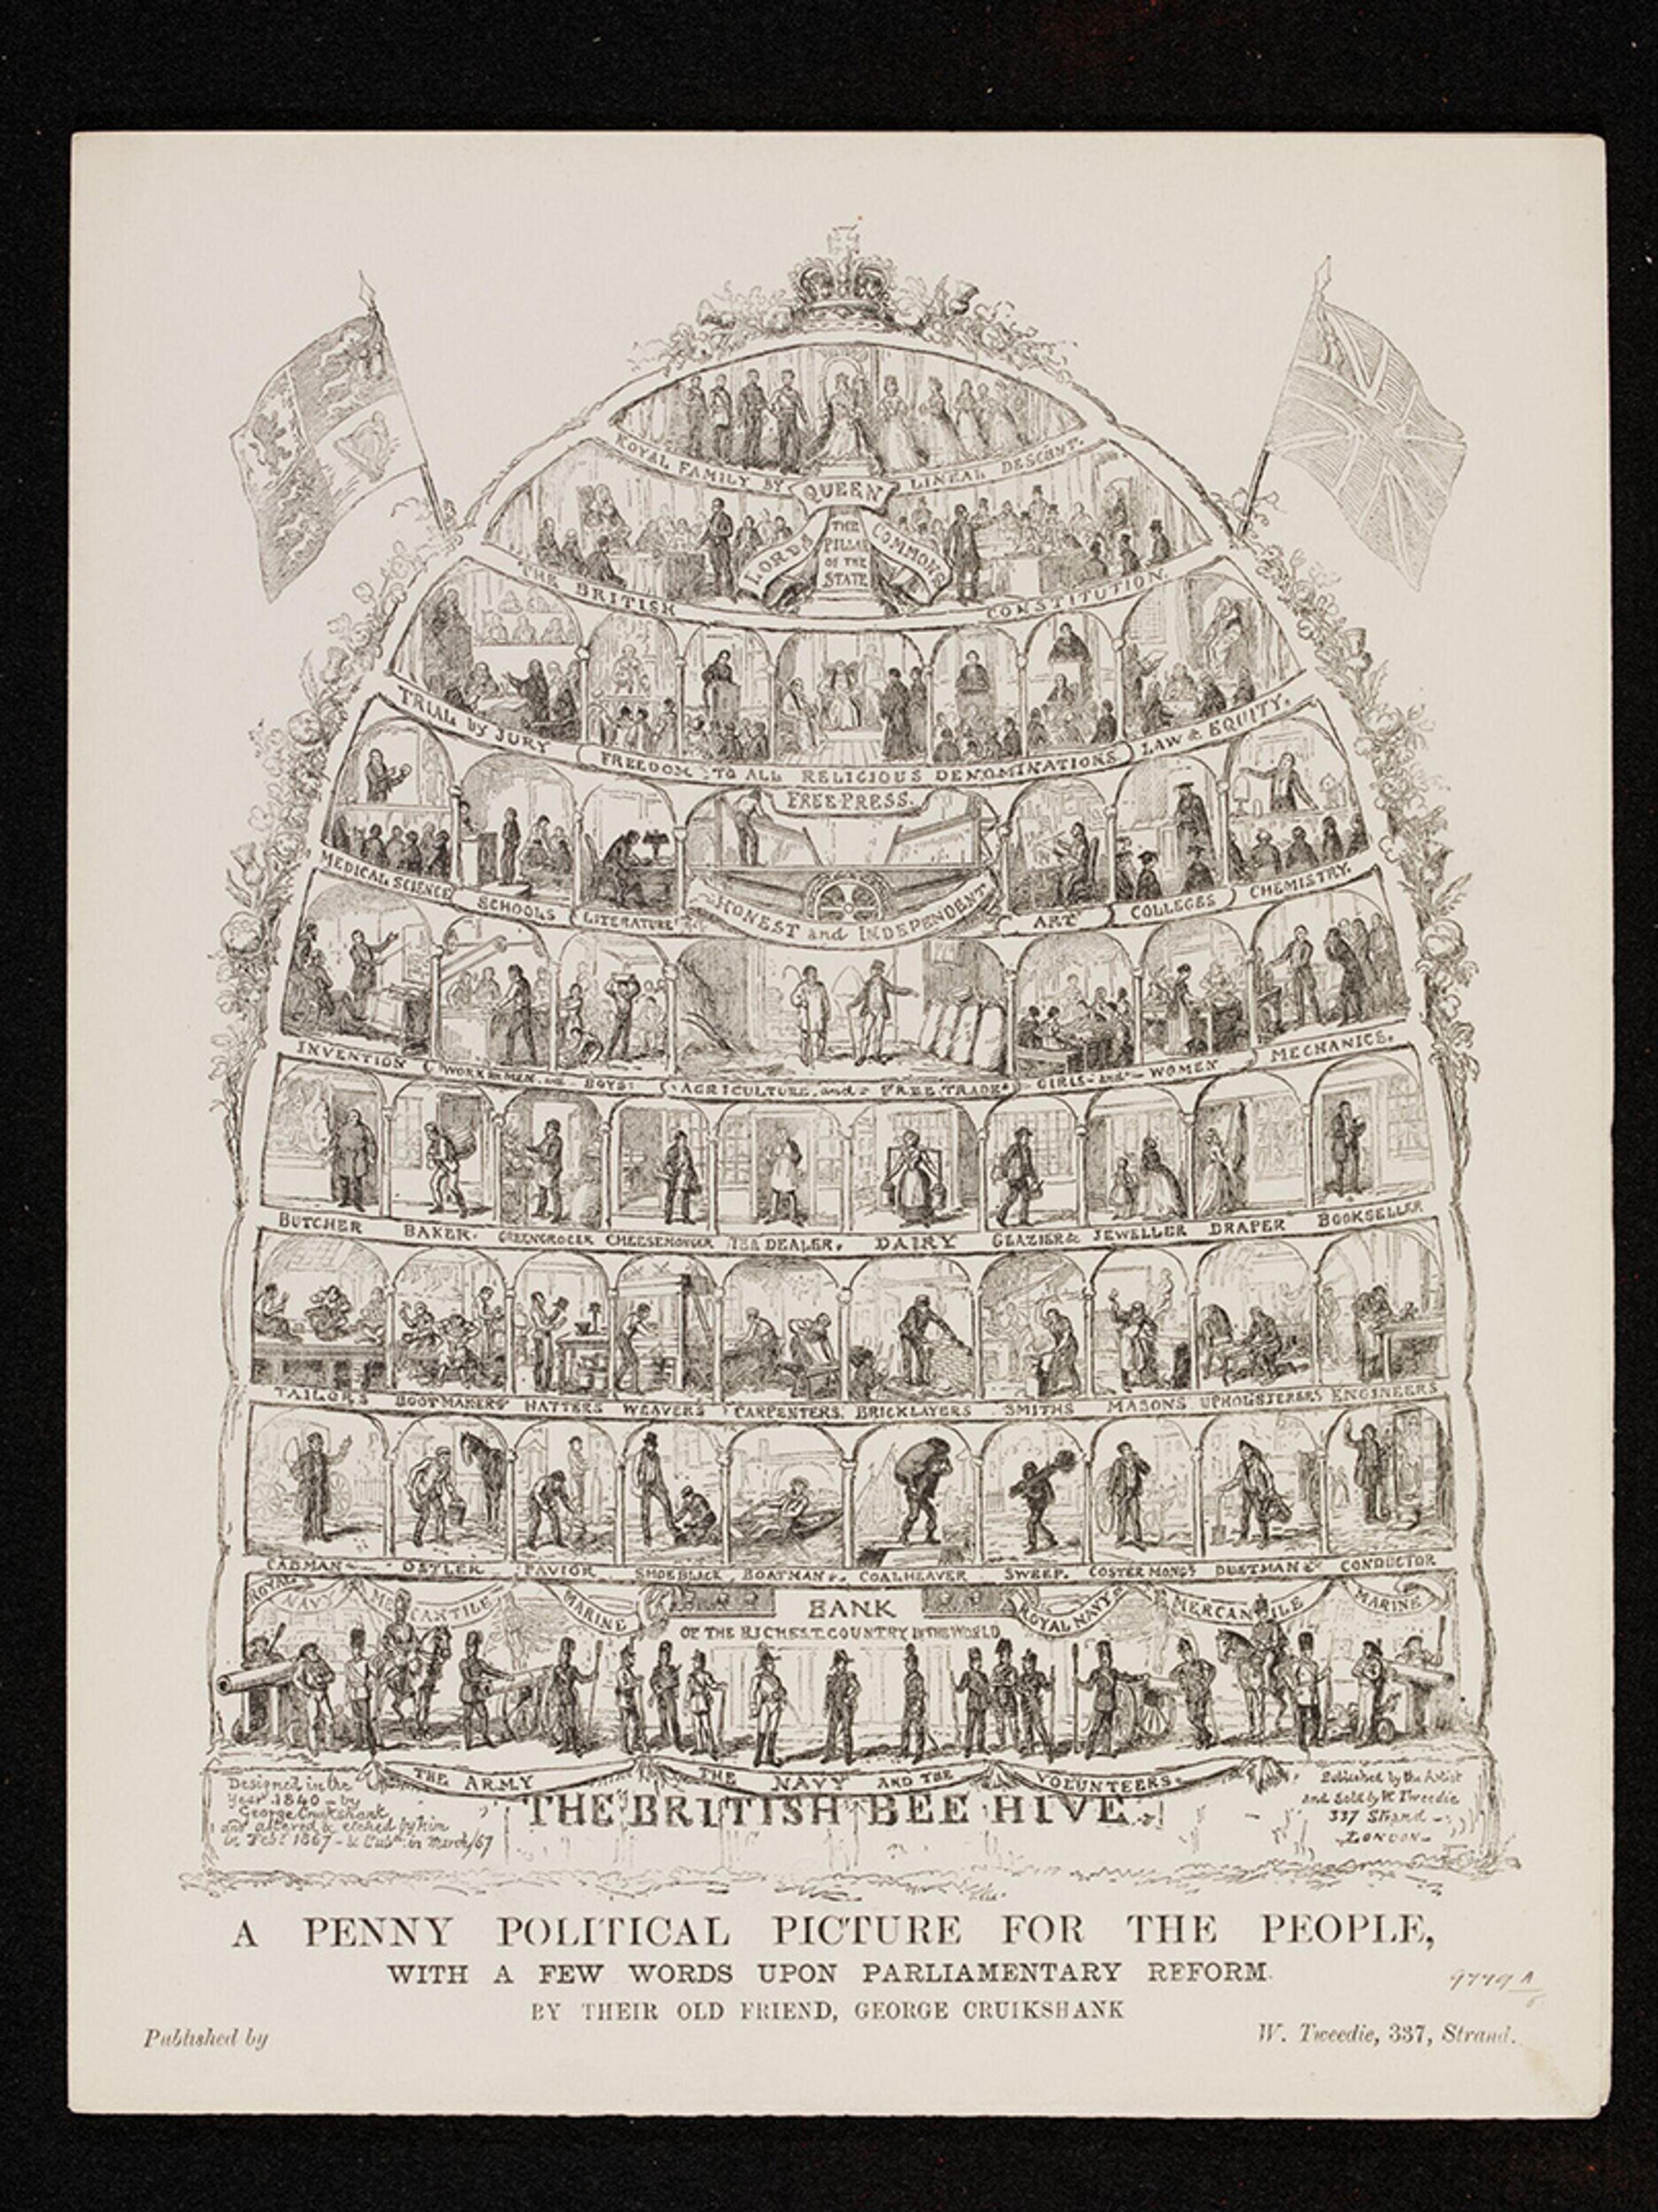 ROYAL FAMILY BY LINEAL DESCENT.
QUEEN
LORDS
THE PILLAR OF THE STATE
COMMONS
THE BRITISH CONSTITUTION.
TRIAL by JURY
FREEDOM TO ALL RELIGIOUS DENOMINATIONS
LAW & EQUITY.
FREE PRESS.
HONEST and INDEPENDENT
MEDICAL SCIENCE
SCHOOLS
LITERATURE
ART
COLLEGES
CHEMISTRY.
INVENTION
WORK MEN and BOYS
AGRICULTURE and FREE TRADE
GIRLS and WOMEN
MECHANICS.
BUTCHER BAKER. GREENGROCER CHEESEMONGER TEA DEALER. DAIRY GLAZIER & JEWELLER DRAPER BOOKSELLER
TAILORS BOOTMAKERS HATTERS WEAVERS CARPENTERS. BRICKLAYERS SMITHS MASONS UPHOLSTERERS ENGINEERS
CABMAN OSTLER PAVIOR SHOEBLACK BOATMAN COALHEAVER SWEEP. COSTERMONGR DUSTMAN & CONDUCTOR
ROYAL NAVY
MERCANTILE
MARINE
BANK
OF THE RICHEST COUNTRY IN THE WORLD
ROYAL NAVY
MERCANTILE
MARINE
THE ARMY THE NAVY AND THE VOLUNTEERS.
THE BRITISH BEE HIVE.
Designed in the
Year 1840 - by
George Cruikshank
and altered & etched by him
in Feby 1867 - & Pubd in March/67
Published by the Artist
and Sold by W Tweedie
337 Strand -
LONDON -
A PENNY POLITICAL PICTURE FOR THE PEOPLE,
WITH A FEW WORDS UPON PARLIAMENTARY REFORM.
BY THEIR OLD FRIEND, GEORGE CRUIKSHANK
Published by
W. Tweedie, 337, Strand.